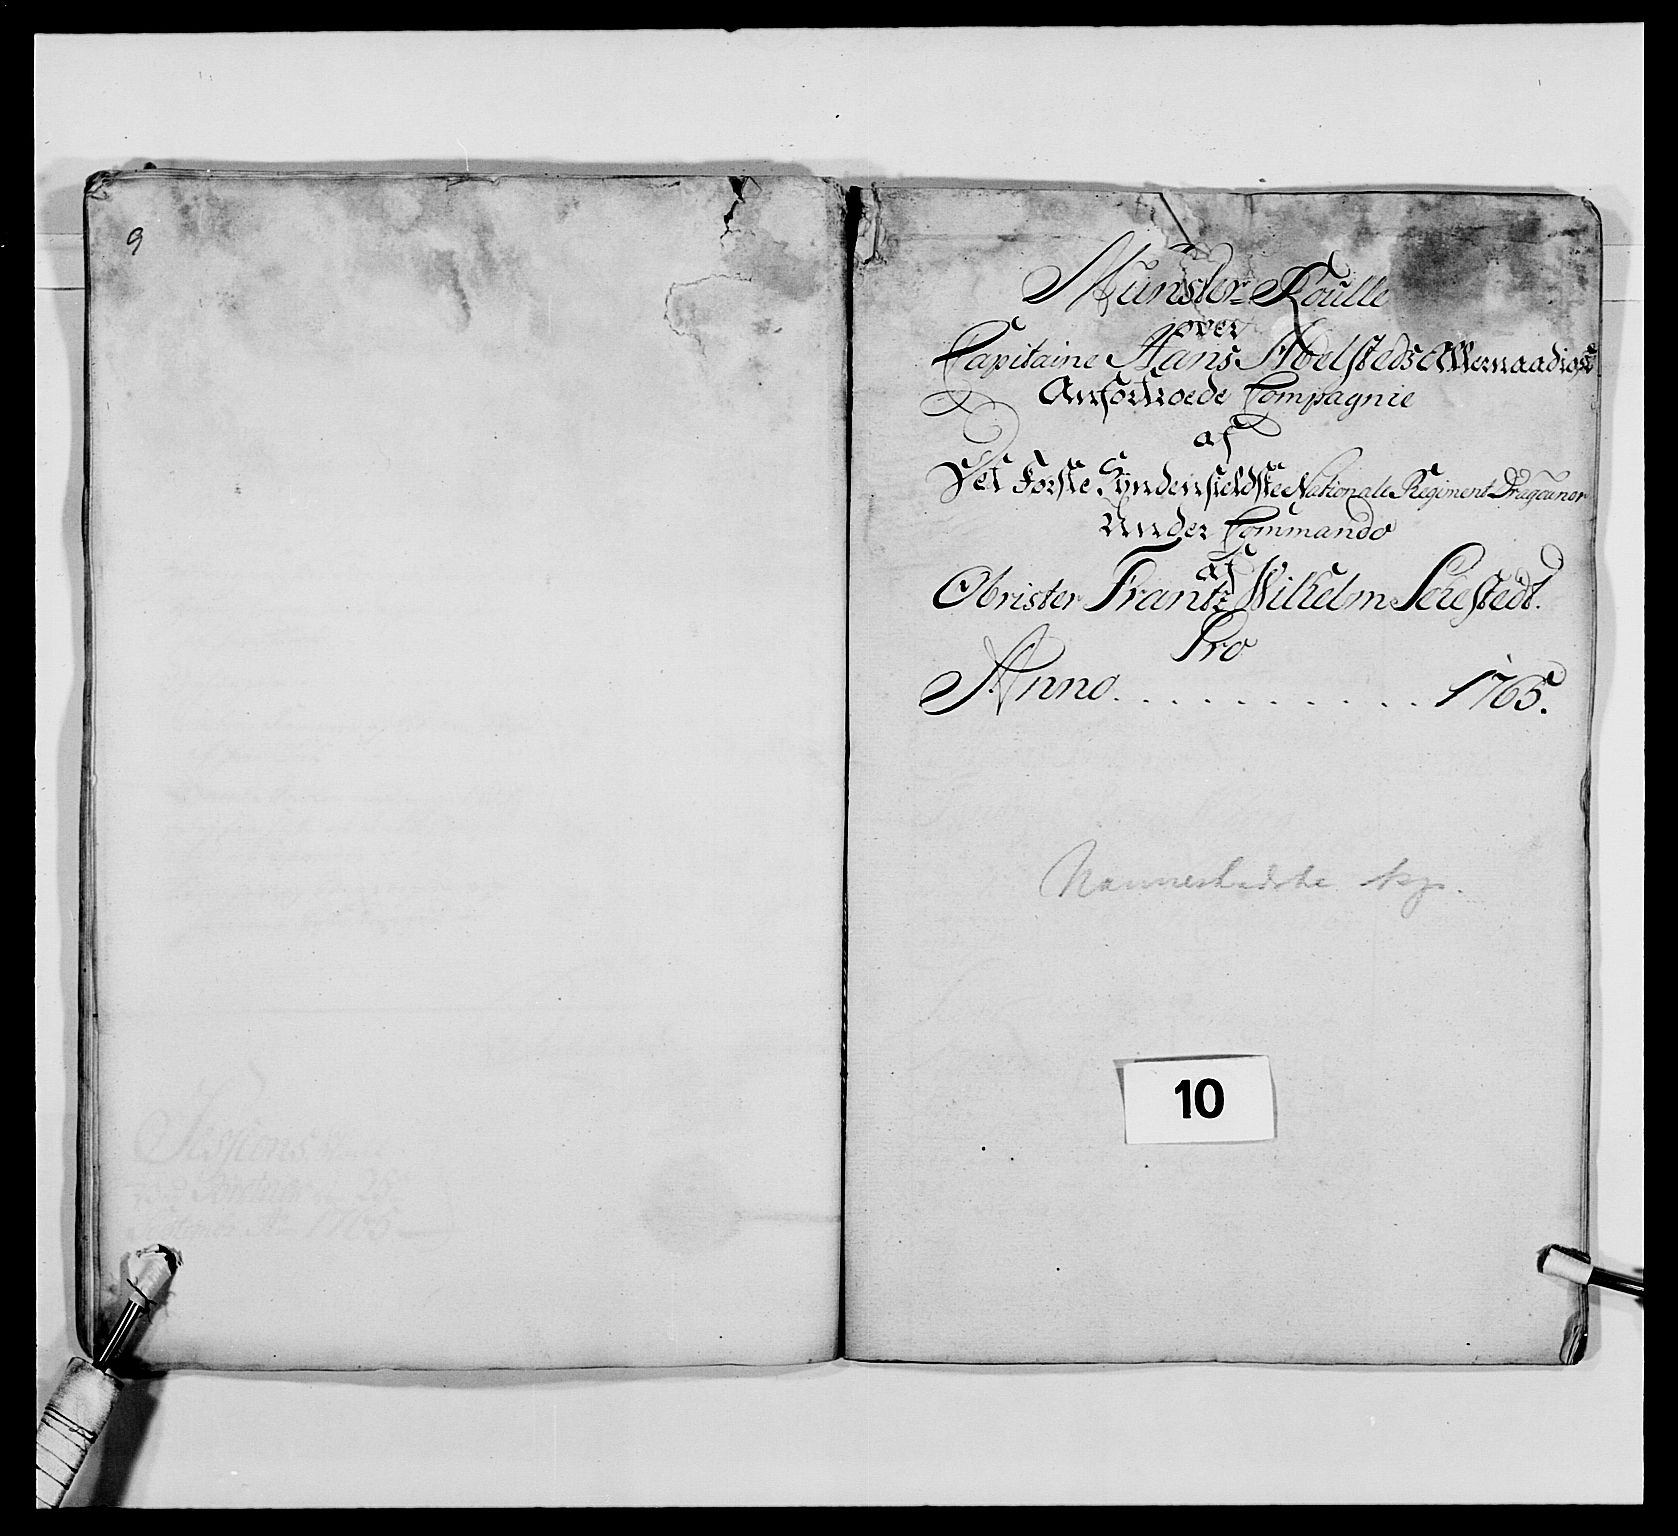 9
Münster-Roulle
over
Capitaine Hans Abelsteds Allernaadigst
Anfortroede Compagnie
af
Det Første Syndenfieldske Nationale Regiment Dragouner
Under Commando
af
Obrister Frantz Wilhelm Sehestedt.
Pro
Anno . . . . . . . . . . 1765.
Mannestadske kp.
10